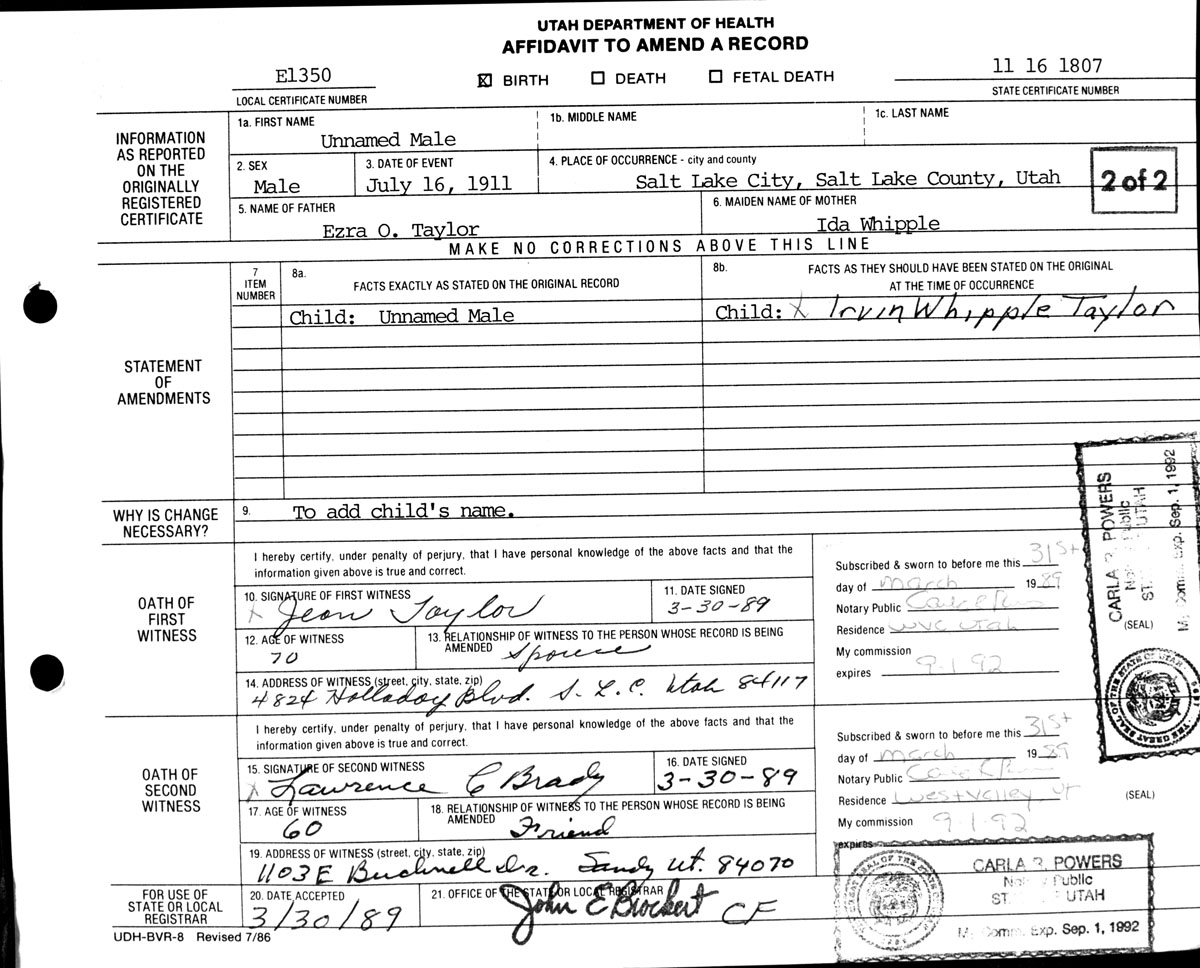 UTAH DEPARTMENT OF HEALTH
AFFIDAVIT TO AMEND A RECORD
E1350
☒ BIRTH ☐ DEATH ☐ FETAL DEATH
11 16 1807
LOCAL CERTIFICATE NUMBER
STATE CERTIFICATE NUMBER
INFORMATION AS REPORTED ON THE ORIGINALLY REGISTERED CERTIFICATE
1a. FIRST NAME
1b. MIDDLE NAME
1c. LAST NAME
Unnamed Male
2. SEX
3. DATE OF EVENT
4. PLACE OF OCCURRENCE - city and county
Male
July 16, 1911
Salt Lake City, Salt Lake County, Utah
2 of 2
5. NAME OF FATHER
6. MAIDEN NAME OF MOTHER
Ezra O. Taylor
Ida Whipple
MAKE NO CORRECTIONS ABOVE THIS LINE
STATEMENT OF AMENDMENTS
7 ITEM NUMBER
8a. FACTS EXACTLY AS STATED ON THE ORIGINAL RECORD
8b. FACTS AS THEY SHOULD HAVE BEEN STATED ON THE ORIGINAL
AT THE TIME OF OCCURRENCE
Child: Unnamed Male
Child: X Irvin Whipple Taylor
WHY IS CHANGE NECESSARY?
9. To add child's name.
OATH OF FIRST WITNESS
I hereby certify, under penalty of perjury, that I have personal knowledge of the above facts and that the
information given above is true and correct.
10. SIGNATURE OF FIRST WITNESS
11. DATE SIGNED
X Jean Taylor
3-30-89
12. AGE OF WITNESS
13. RELATIONSHIP OF WITNESS TO THE PERSON WHOSE RECORD IS BEING
AMENDED
70
Spouse
14. ADDRESS OF WITNESS (street, city, state, zip)
4824 Holladay Blvd. S. L. C. Utah 84117
Subscribed & sworn to before me this 31st
day of March 1989
Notary Public
Residence WVC Utah
My commission
expires 9-1-92
(SEAL)
CARLA R. POWERS
Notary Public
STATE OF UTAH
My Comm. Exp. Sep. 1, 1992
THE GREAT SEAL OF THE STATE OF UTAH
OATH OF SECOND WITNESS
I hereby certify, under penalty of perjury, that I have personal knowledge of the above facts and that the
information given above is true and correct.
15. SIGNATURE OF SECOND WITNESS
16. DATE SIGNED
X Lawrence C Brady
3-30-89
17. AGE OF WITNESS
18. RELATIONSHIP OF WITNESS TO THE PERSON WHOSE RECORD IS BEING
AMENDED
60
Friend
19. ADDRESS OF WITNESS (street, city, state, zip)
1103 E Bucknell Dr. Sandy Ut. 84070
Subscribed & sworn to before me this 31st
day of March 1989
Notary Public
Residence West Valley, Ut
My commission 9-1-92
expires
(SEAL)
CARLA R. POWERS
Notary Public
STATE OF UTAH
My Comm. Exp. Sep. 1, 1992
FOR USE OF STATE OR LOCAL REGISTRAR
20. DATE ACCEPTED
21. OFFICE OF THE STATE OR LOCAL REGISTRAR
3/30/89
John E Brockert CF
UDH-BVR-8 Revised 7/86